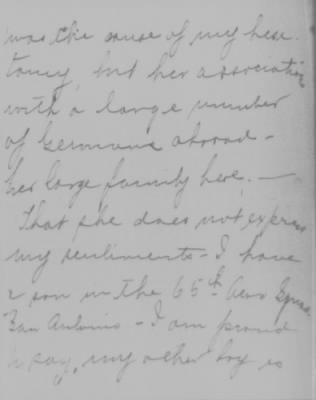 was the cause of my hesi-
tancy, but her association
with a large number
of Germans abroad -
her large family here. —
That she does not express
my sentiments - I have
a son in the 65th Aero Squad.
San Antonio - I am proud
to say, my other boy is